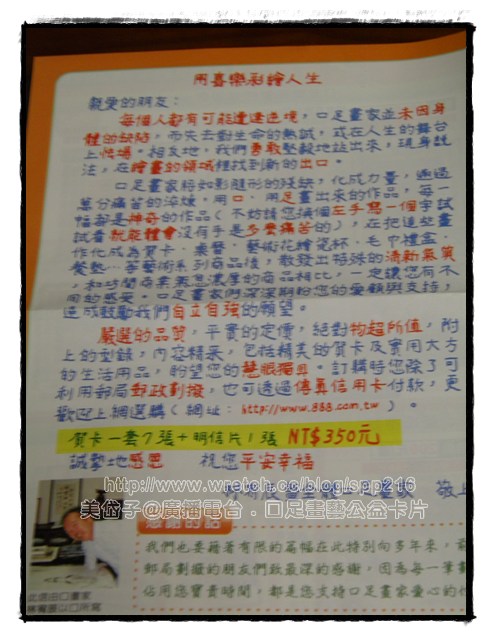 用喜樂彩繪人生
親愛的朋友：
每個人都有可能遭逢逆境，口足畫家並未因身
體的缺陷，而失去對生命的熱誠，或在人生的舞台
上怯場。相反地，我們勇敢堅毅地站出來，現身說
法，在繪畫的領域裡找到新的出口。
口足畫家將如影隨形的殘缺，化成力量，透過
萬分痛苦的淬煉，用口、用足畫出來的作品，每一
幅都是神奇的作品（不妨請您換個左手寫一個字試
試看就能體會沒有手是多麼痛苦的），在把這些畫
作化成為賀卡、桌曆、藝術花繪瓷杯、毛巾禮盒、
餐墊…等藝術系列商品後，散發出特殊的清新氣質
，和坊間商業氣息濃厚的商品相比，一定讓您有不
同的感受。口足畫家們深深期盼您的愛顧與支持，
達成鼓勵我們自立自強的願望。
嚴選的品質，平實的定價，絕對物超所值，附
上的型錄，內容精采，包括精美的賀卡及實用大方
的生活用品，盼望您的慧眼獨具。訂購時您除了可
利用郵局郵政劃撥，也可透過傳真信用卡付款，更
歡迎上網選購（網址：http://www.888.com.tw）。
賀卡一套7張+明信片1張 NT$350元
誠摯地感恩 祝您平安幸福
敬上
http://www.wretch.cc/blog/spp216
美岱子@廣播電台．口足畫藝公益卡片
感恩的話
我們也要藉著有限的篇幅在此特別向多年來，
郵局劃撥的朋友們致最深的感謝，因為每一筆
佔用您寶貴時間，都是您支持口足畫家童心的
此信由口畫家